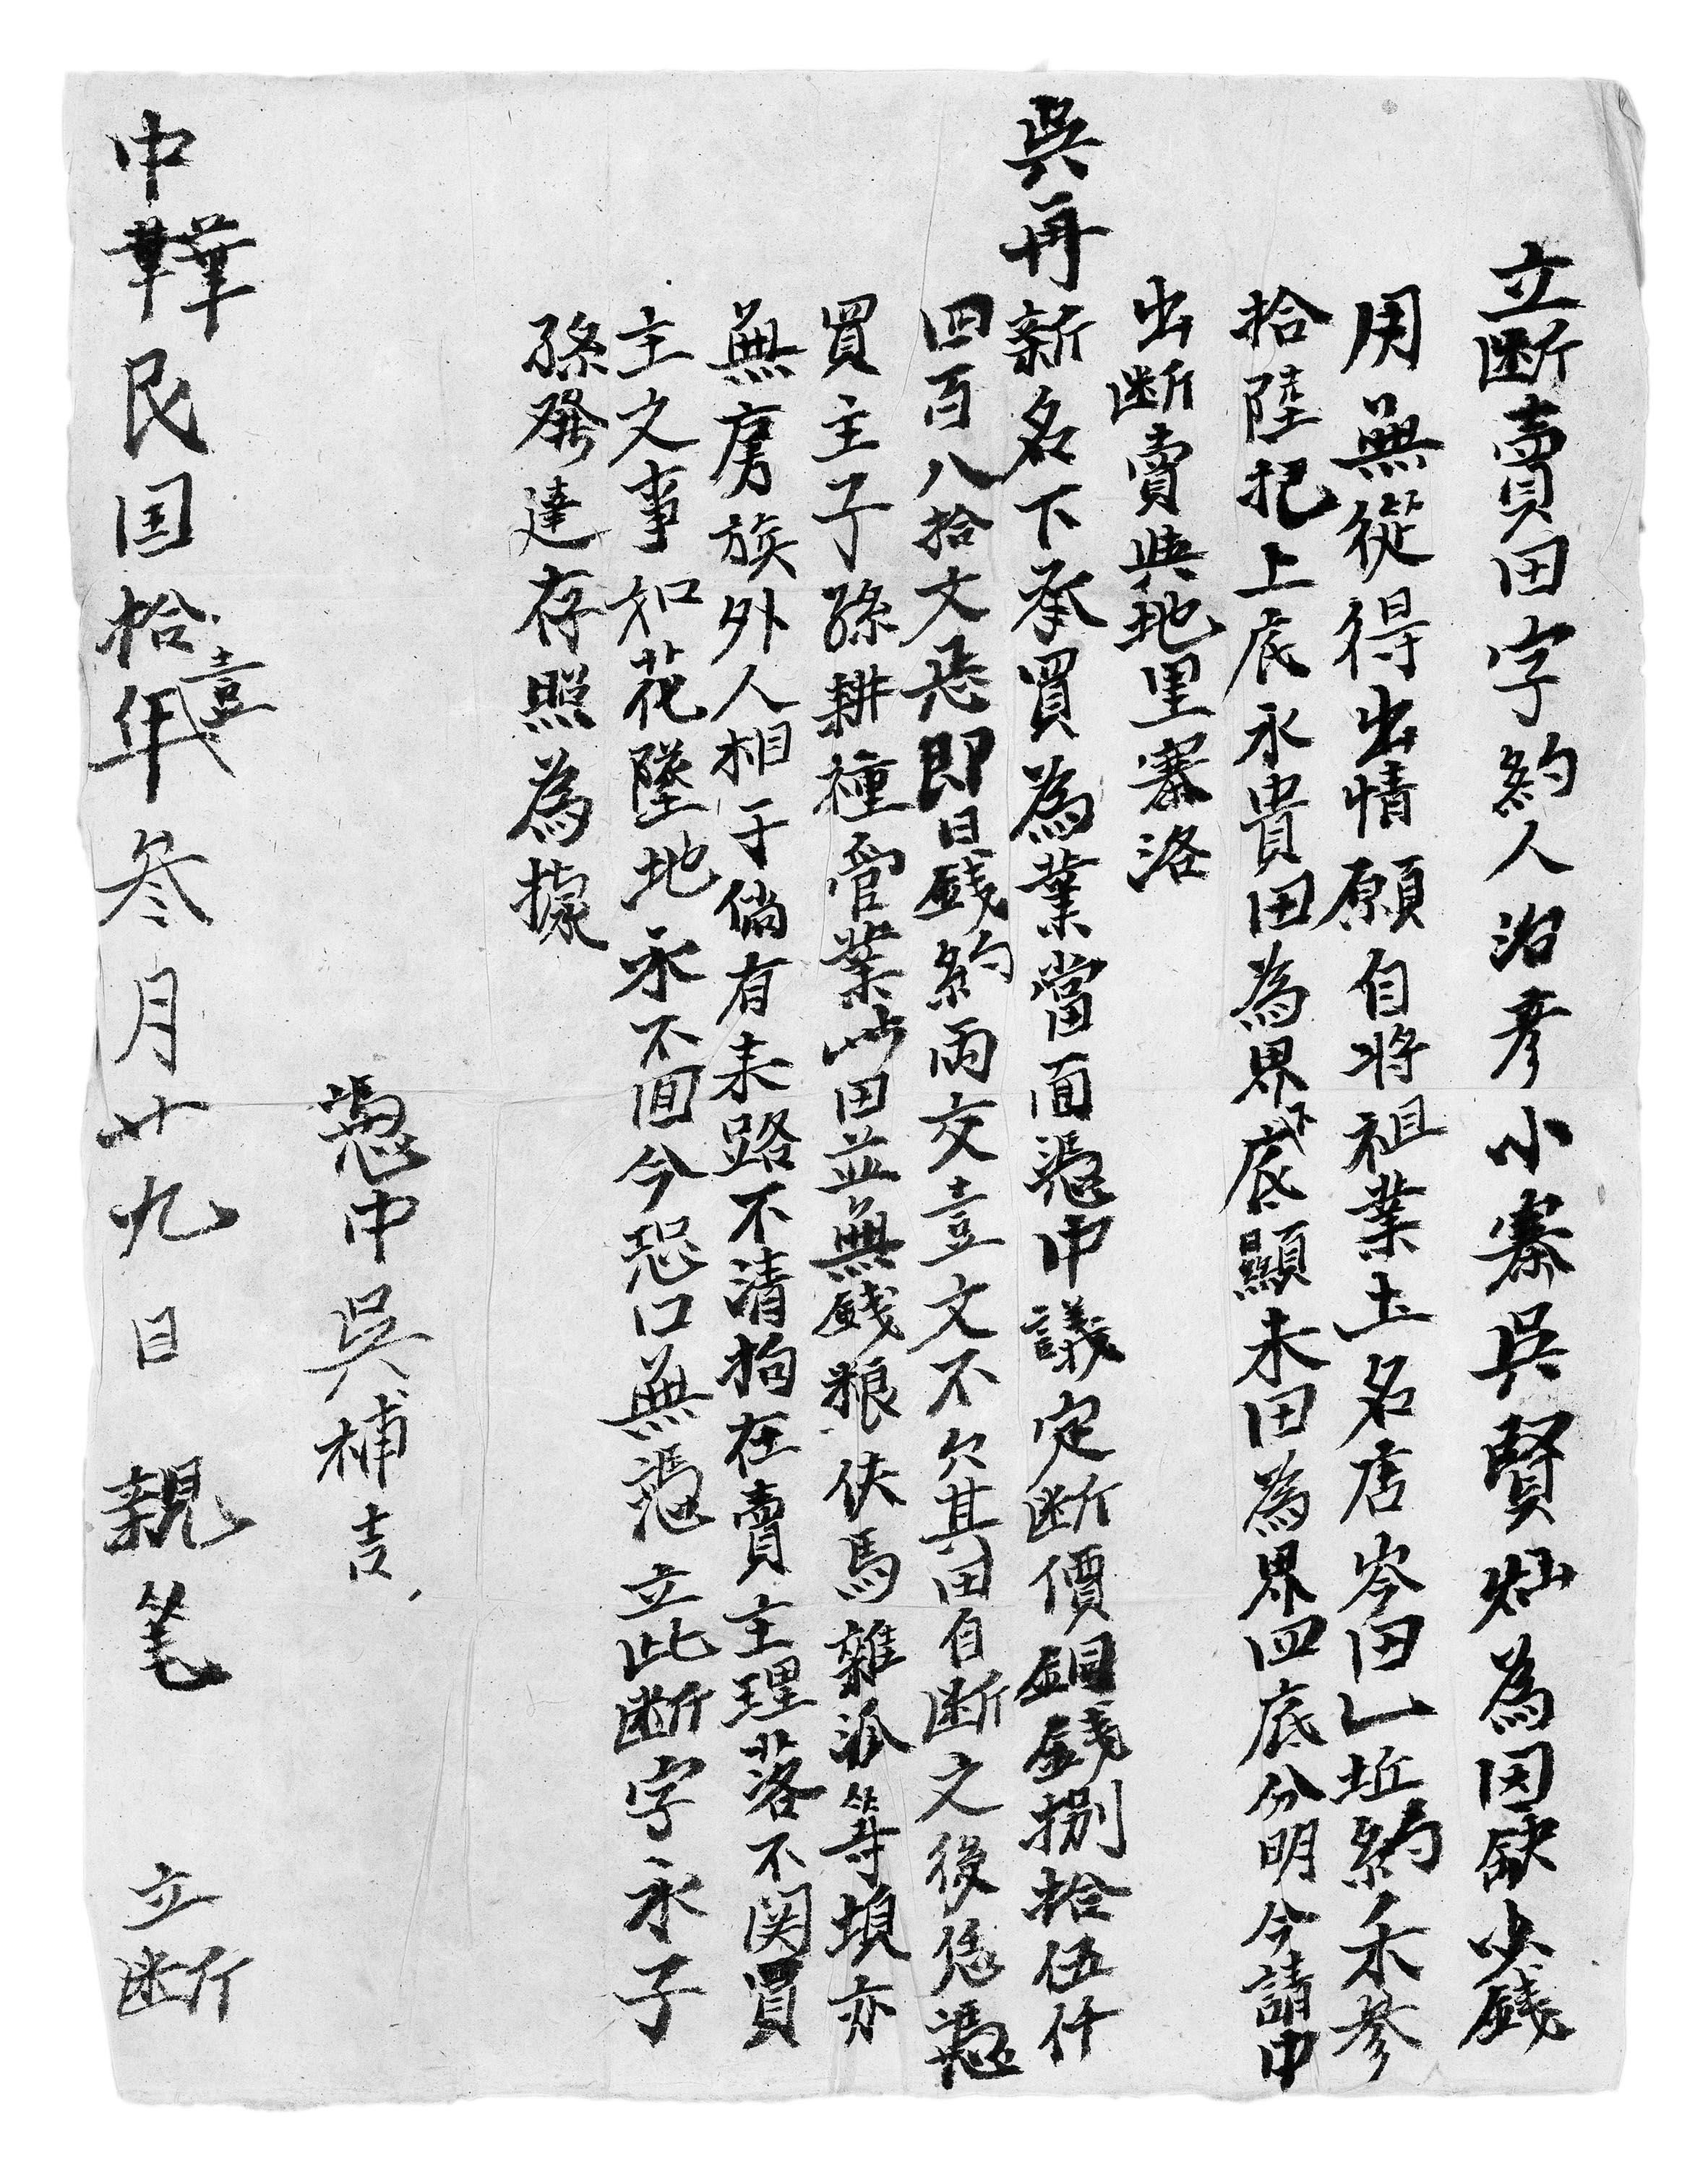 立断賣田字約人沼彦小寨吳賢灿為因缺少錢
用無從得出情願自将祖業土名唐岑田乚坵約禾叄
拾陸把上底永貴田為界下底顯未田為界四底分明今請中
出断賣與地里寨洛
吳再新名下承買為業當面憑中議定断價銅錢捌拾伍仟
四百八拾文足即日錢約兩交壹文不欠其田自断之後恁憑
買主子孫耕種管業此田並無錢粮伕馬雜派等項亦
無房族外人相于倘有来路不清拘在賣主理落不関買
主之事如花墜地永不回今恐口無憑立此断字永子
孫發達存照為據
憑中吳補吉
中華民国拾壹年叄月廿九日 親笔 立断